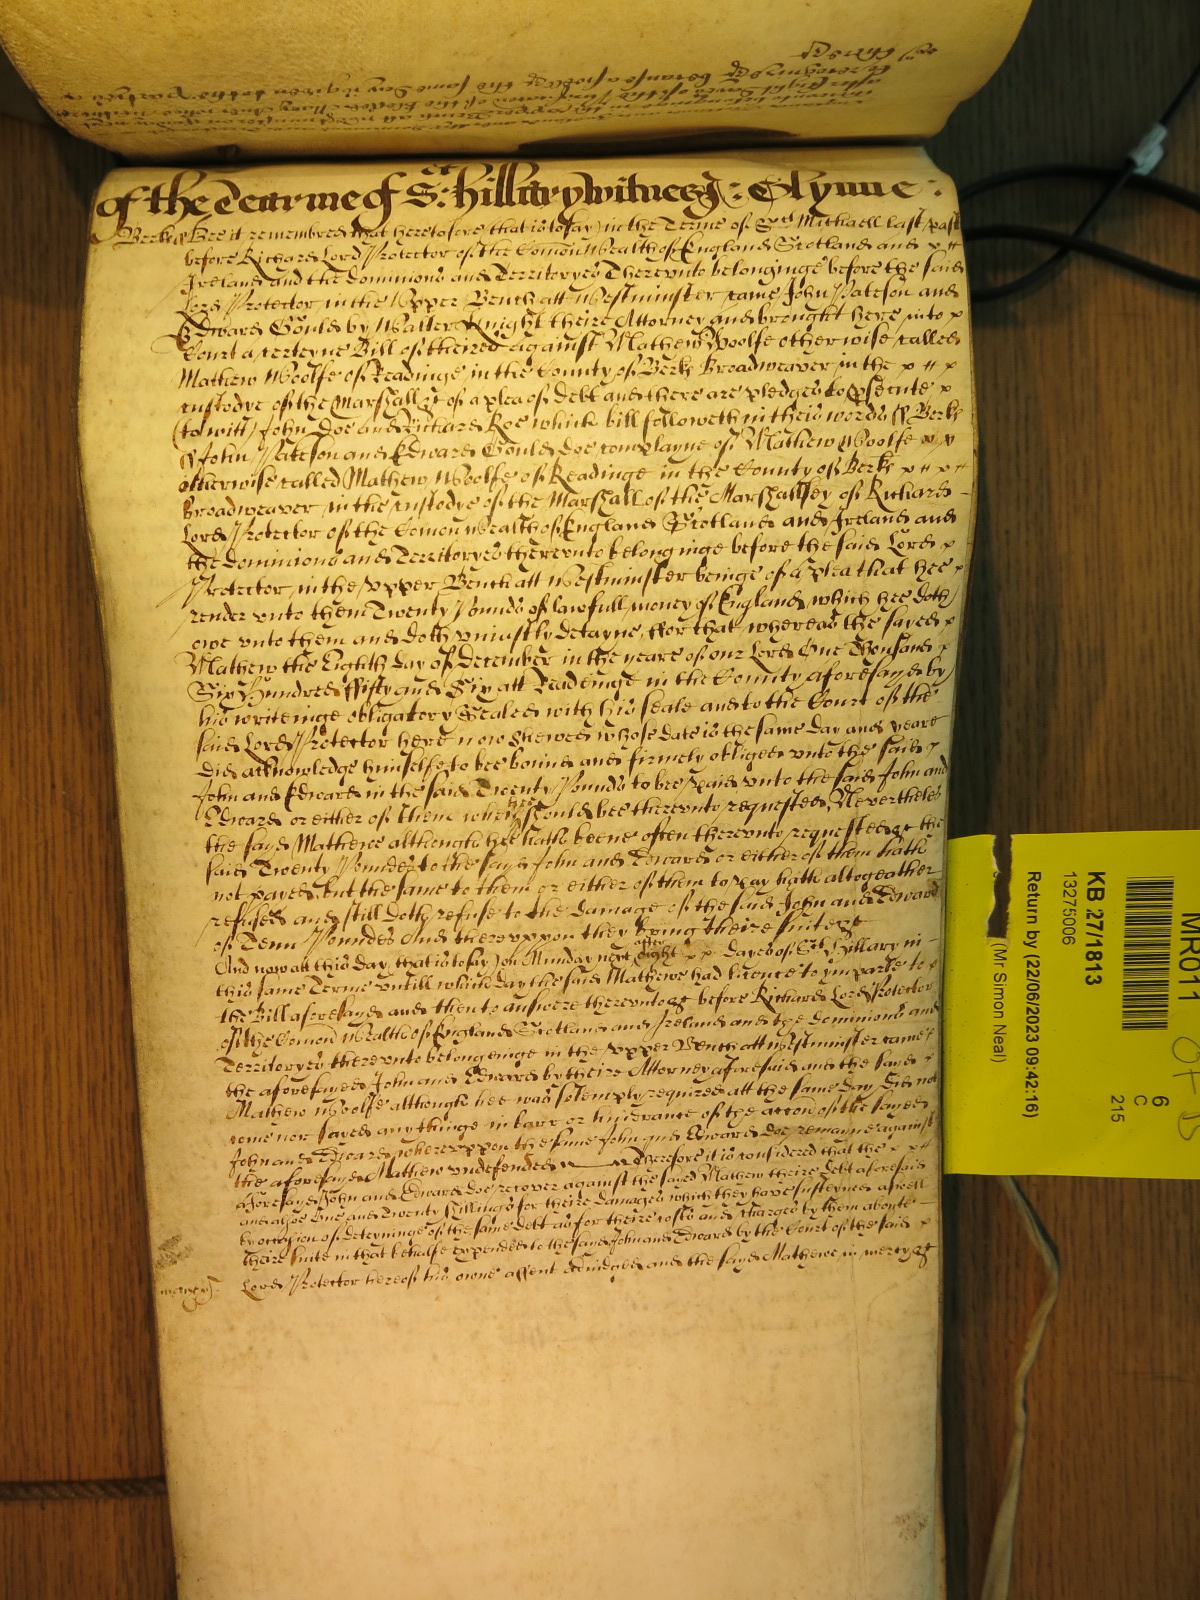 of the Tearme of St: hillary witnes J: Glynne:
Berks ss Bee it remembred that heretofore that is to say in the Terme of Snt Michaell last past
before Richard Lord Protector of the Comon Wealth of England Scotland and
Ireland and the Dominions and Territoryes Therevnto belonginge before the said
Lord Protector in the Vpper Bench att Westminster came John Pateson and
Edward Gould by Walter Knight theire Attorney and brought here into
Court a certeyne Bill of theires against Mathew Woolfe otherwise called
Mathew Woolfe of Readinge in the County of Berks Broadweaver in the
custodye of the Marshall &c of a plea of Debt and there are pledges to psecute
(to witt) John Doe and Richard Roe which bill followeth in theis words ss Berks
ss John Pateson and Edward Gould doe complayne of Mathew Woolfe
otherwise called Mathew Woolfe of Readinge in the County of Berks
Broadweaver in the custodye of the Marshall of the Marshallsey of Richard
Lord Protector of the Comon Wealth of England Scotland and Ireland and
the Dominions and Territoryes therevnto belonginge before the said Lord
Protector in the Vpper Bench att Westminster beinge of a plea that hee
render vnto them Twenty Pounds of lawfull money of England which hee doth
owe vnto them and doth vniustly detayne, ffor that whereas the sayed
Mathew the Eighth day of December in the yeare of our Lord One Thousand
Six Hundred ffifty and Six att Readinge in the County aforesayed by
his writeinge obligatory Sealed with his seale and to the Court of the
said Lord Protector here now shewed whose date is the same day and yeare
did acknowledge himselfe to bee bound and firmely obliged vnto the said
John and Edward in the said Twenty Pounds to bee paid vnto the said John and
Edward or either of them when hee should bee therevnto requested, Neverthelesse
the sayd Mathewe although hee hath beene often therevnto requested &c the
said Twenty Poundes to the sayd John and Edward or either of them hath
not payed, but the same to them or either of them to pay hath altogeather
refused and still doth refuse to the damage of the said John and Edward
of Tenn Poundes And therevppon they bring theire suite &c
And now att this day, that is to say) on Munday next after Eight dayes of Snt Hillary in
this same Terme untill which day the said Mathewe had licence to imparle to
the Bill aforesayd and then to answere therevnto &c before Richard Lord Protector
of the Comon Wealth of England Scotland and Ireland and the Dominions and
Territoryes therevnto belonginge in the Vpper Bench att Westminster came
the aforesayed John and Edward by theire Attorney aforesaid and the sayd
Mathew Woolfe although hee was solemply required att the same day Did not
come nor sayed any thinge in barr or hinderance of the accon of the sayed
John and Edward, wherevppon the same John and Edward doe remayne against
the aforesayd Mathew vndefended Therefore it is considered that the
aforesayd John and Edward doe recover against the sayed Mathew theire Debt aforesaid
and alsoe One and Twenty Shillings for theire damages which they have susteyned aswell
by occasion of deteyninge of the same debt as for theire costs and charges by them aboute
theire suite in that behalfe expended to the sayd John and Edward by the Court of the said
Lord Protector hereof his owne assent adiudged and the sayd Mathewe in mercy &c
MR011
6
C
215
KB 27/1813
13275006
Return by (22/06/2023 09:42:16)
(Mr Simon Neal)